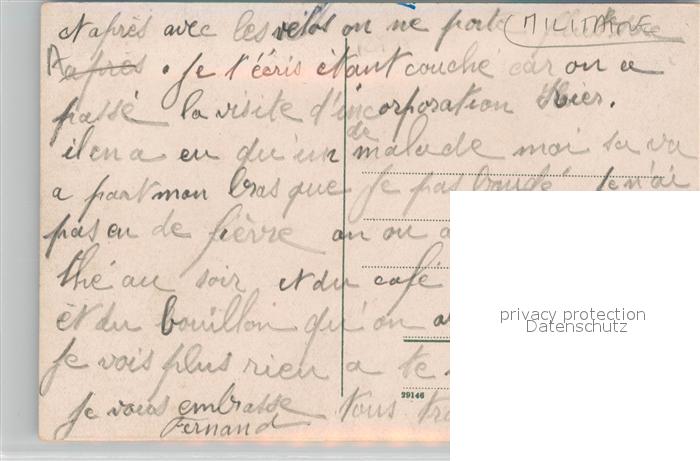 et après avec les vélos on ne porte
MILITAIRE
Aaprès . Je t'écris étant couché car on a
passé la visite d'incorporation Hier.
il en a eu qu'un de malade moi sa va
a part mon bras que je Je n'ai
pas eu de fièvre on ou a
thé au soir et du café
et du bouillon qu'on a
Je vois plus rien a te
Je vous embrasse tous
Fernand
29146
privacy protection
Datenschutz